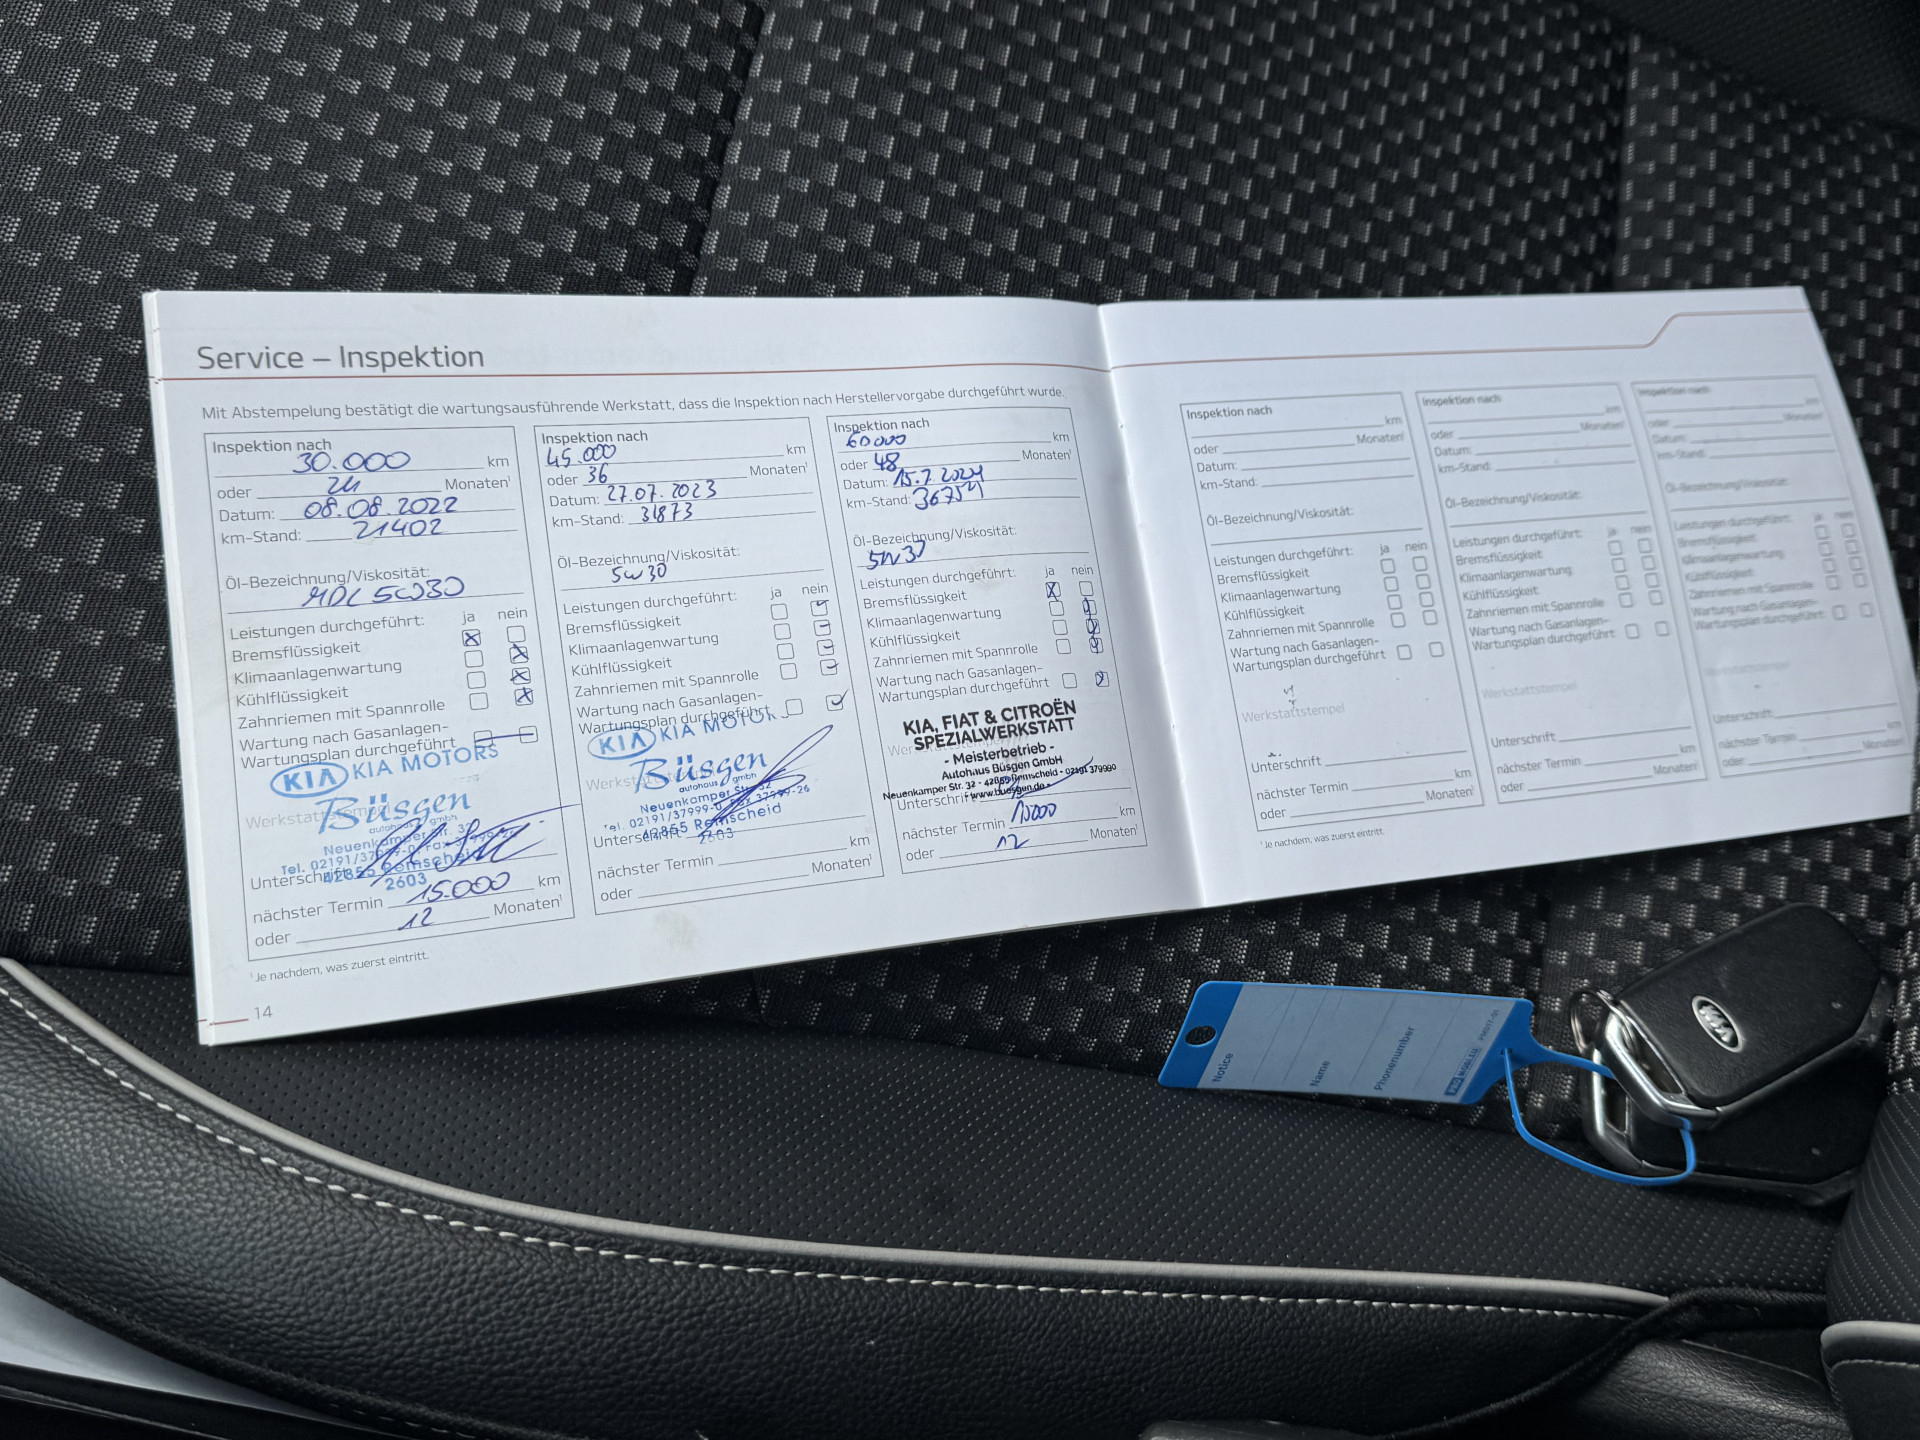 Service – Inspektion
Mit Abstempelung bestätigt die wartungsausführende Werkstatt, dass die Inspektion nach Herstellervorgabe durchgeführt wurde.
Inspektion nach
30.000 km
oder 24 Monaten¹
Datum: 08.08.2022
km-Stand: 21402
Öl-Bezeichnung/Viskosität:
5W30
Leistungen durchgeführt: ja nein
Bremsflüssigkeit
Klimaanlagenwartung
Kühlflüssigkeit
Zahnriemen mit Spannrolle
Wartung nach Gasanlagen-
Wartungsplan durchgeführt
KIA KIA MOTORS
Werkstattstempel
Büsgen
autohaus gmbh
Neuenkamper Str. 32
Tel. 02191/37999-0 Fax 37999-26
42855 Remscheid
Unterschrift
2603
nächster Termin 15.000 km
oder 12 Monaten¹
¹ Je nachdem, was zuerst eintritt.
14
Inspektion nach
45.000 km
oder 36 Monaten¹
Datum: 27.07.2023
km-Stand: 31873
Öl-Bezeichnung/Viskosität:
5w30
Leistungen durchgeführt: ja nein
Bremsflüssigkeit
Klimaanlagenwartung
Kühlflüssigkeit
Zahnriemen mit Spannrolle
Wartung nach Gasanlagen-
Wartungsplan durchgeführt
KIA KIA MOTOR
Büsgen
autohaus gmbh
Neuenkamper Str. 32
Tel. 02191/37999-0 Fax 37999-26
42855 Remscheid
2603
nächster Termin km
oder Monaten¹
Inspektion nach
60000 km
oder 48 Monaten¹
Datum: 15.7.2024
km-Stand: 36754
Öl-Bezeichnung/Viskosität:
5W30
Leistungen durchgeführt: ja nein
Bremsflüssigkeit
Klimaanlagenwartung
Kühlflüssigkeit
Zahnriemen mit Spannrolle
Wartung nach Gasanlagen-
Wartungsplan durchgeführt
KIA, FIAT & CITROËN
SPEZIALWERKSTATT
- Meisterbetrieb -
Autohaus Büsgen GmbH
Neuenkamper Str. 32 - 42855 Remscheid - 02191 379990
- www.buesgen.de -
Unterschrift
nächster Termin 15000 km
oder 12 Monaten¹
Inspektion nach
km
oder Monaten¹
Datum:
km-Stand:
Öl-Bezeichnung/Viskosität:
Leistungen durchgeführt: ja nein
Bremsflüssigkeit
Klimaanlagenwartung
Kühlflüssigkeit
Zahnriemen mit Spannrolle
Wartung nach Gasanlagen-
Wartungsplan durchgeführt
Werkstattstempel
Unterschrift
nächster Termin km
oder Monaten¹
¹ Je nachdem, was zuerst eintritt.
Inspektion nach
km
oder Monaten¹
Datum:
km-Stand:
Öl-Bezeichnung/Viskosität:
Leistungen durchgeführt: ja nein
Bremsflüssigkeit
Klimaanlagenwartung
Kühlflüssigkeit
Zahnriemen mit Spannrolle
Wartung nach Gasanlagen-
Wartungsplan durchgeführt
Werkstattstempel
Unterschrift
nächster Termin km
oder Monaten¹
Inspektion nach
km
oder Monaten¹
Datum:
km-Stand:
Öl-Bezeichnung/Viskosität:
Leistungen durchgeführt: ja nein
Bremsflüssigkeit
Klimaanlagenwartung
Kühlflüssigkeit
Zahnriemen mit Spannrolle
Wartung nach Gasanlagen-
Wartungsplan durchgeführt
Werkstattstempel
Unterschrift
nächster Termin km
oder Monaten¹
Notice
Name
Phonenumber
KIA